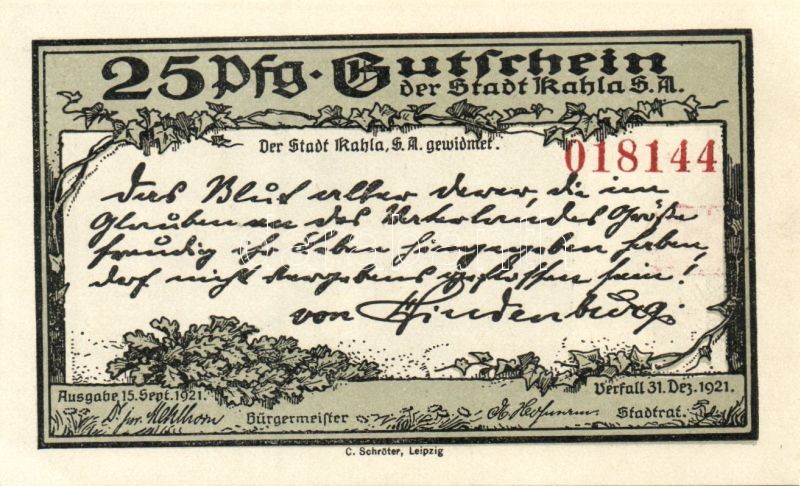 25 Pfg · Gutschein
der Stadt Kahla S.A.
Der Stadt Kahla, S. A. gewidmet.
018144
Das Blut aller derer, die im
Glauben an des Vaterlandes Größe
freudig ihr Leben hingegeben haben,
darf nicht vergebens geflossen sein!
von Hindenburg.
Ausgabe 15. Sept. 1921.
Verfall 31. Dez. 1921.
Dr jur.
Bürgermeister
Stadtrat.
C. Schröter, Leipzig